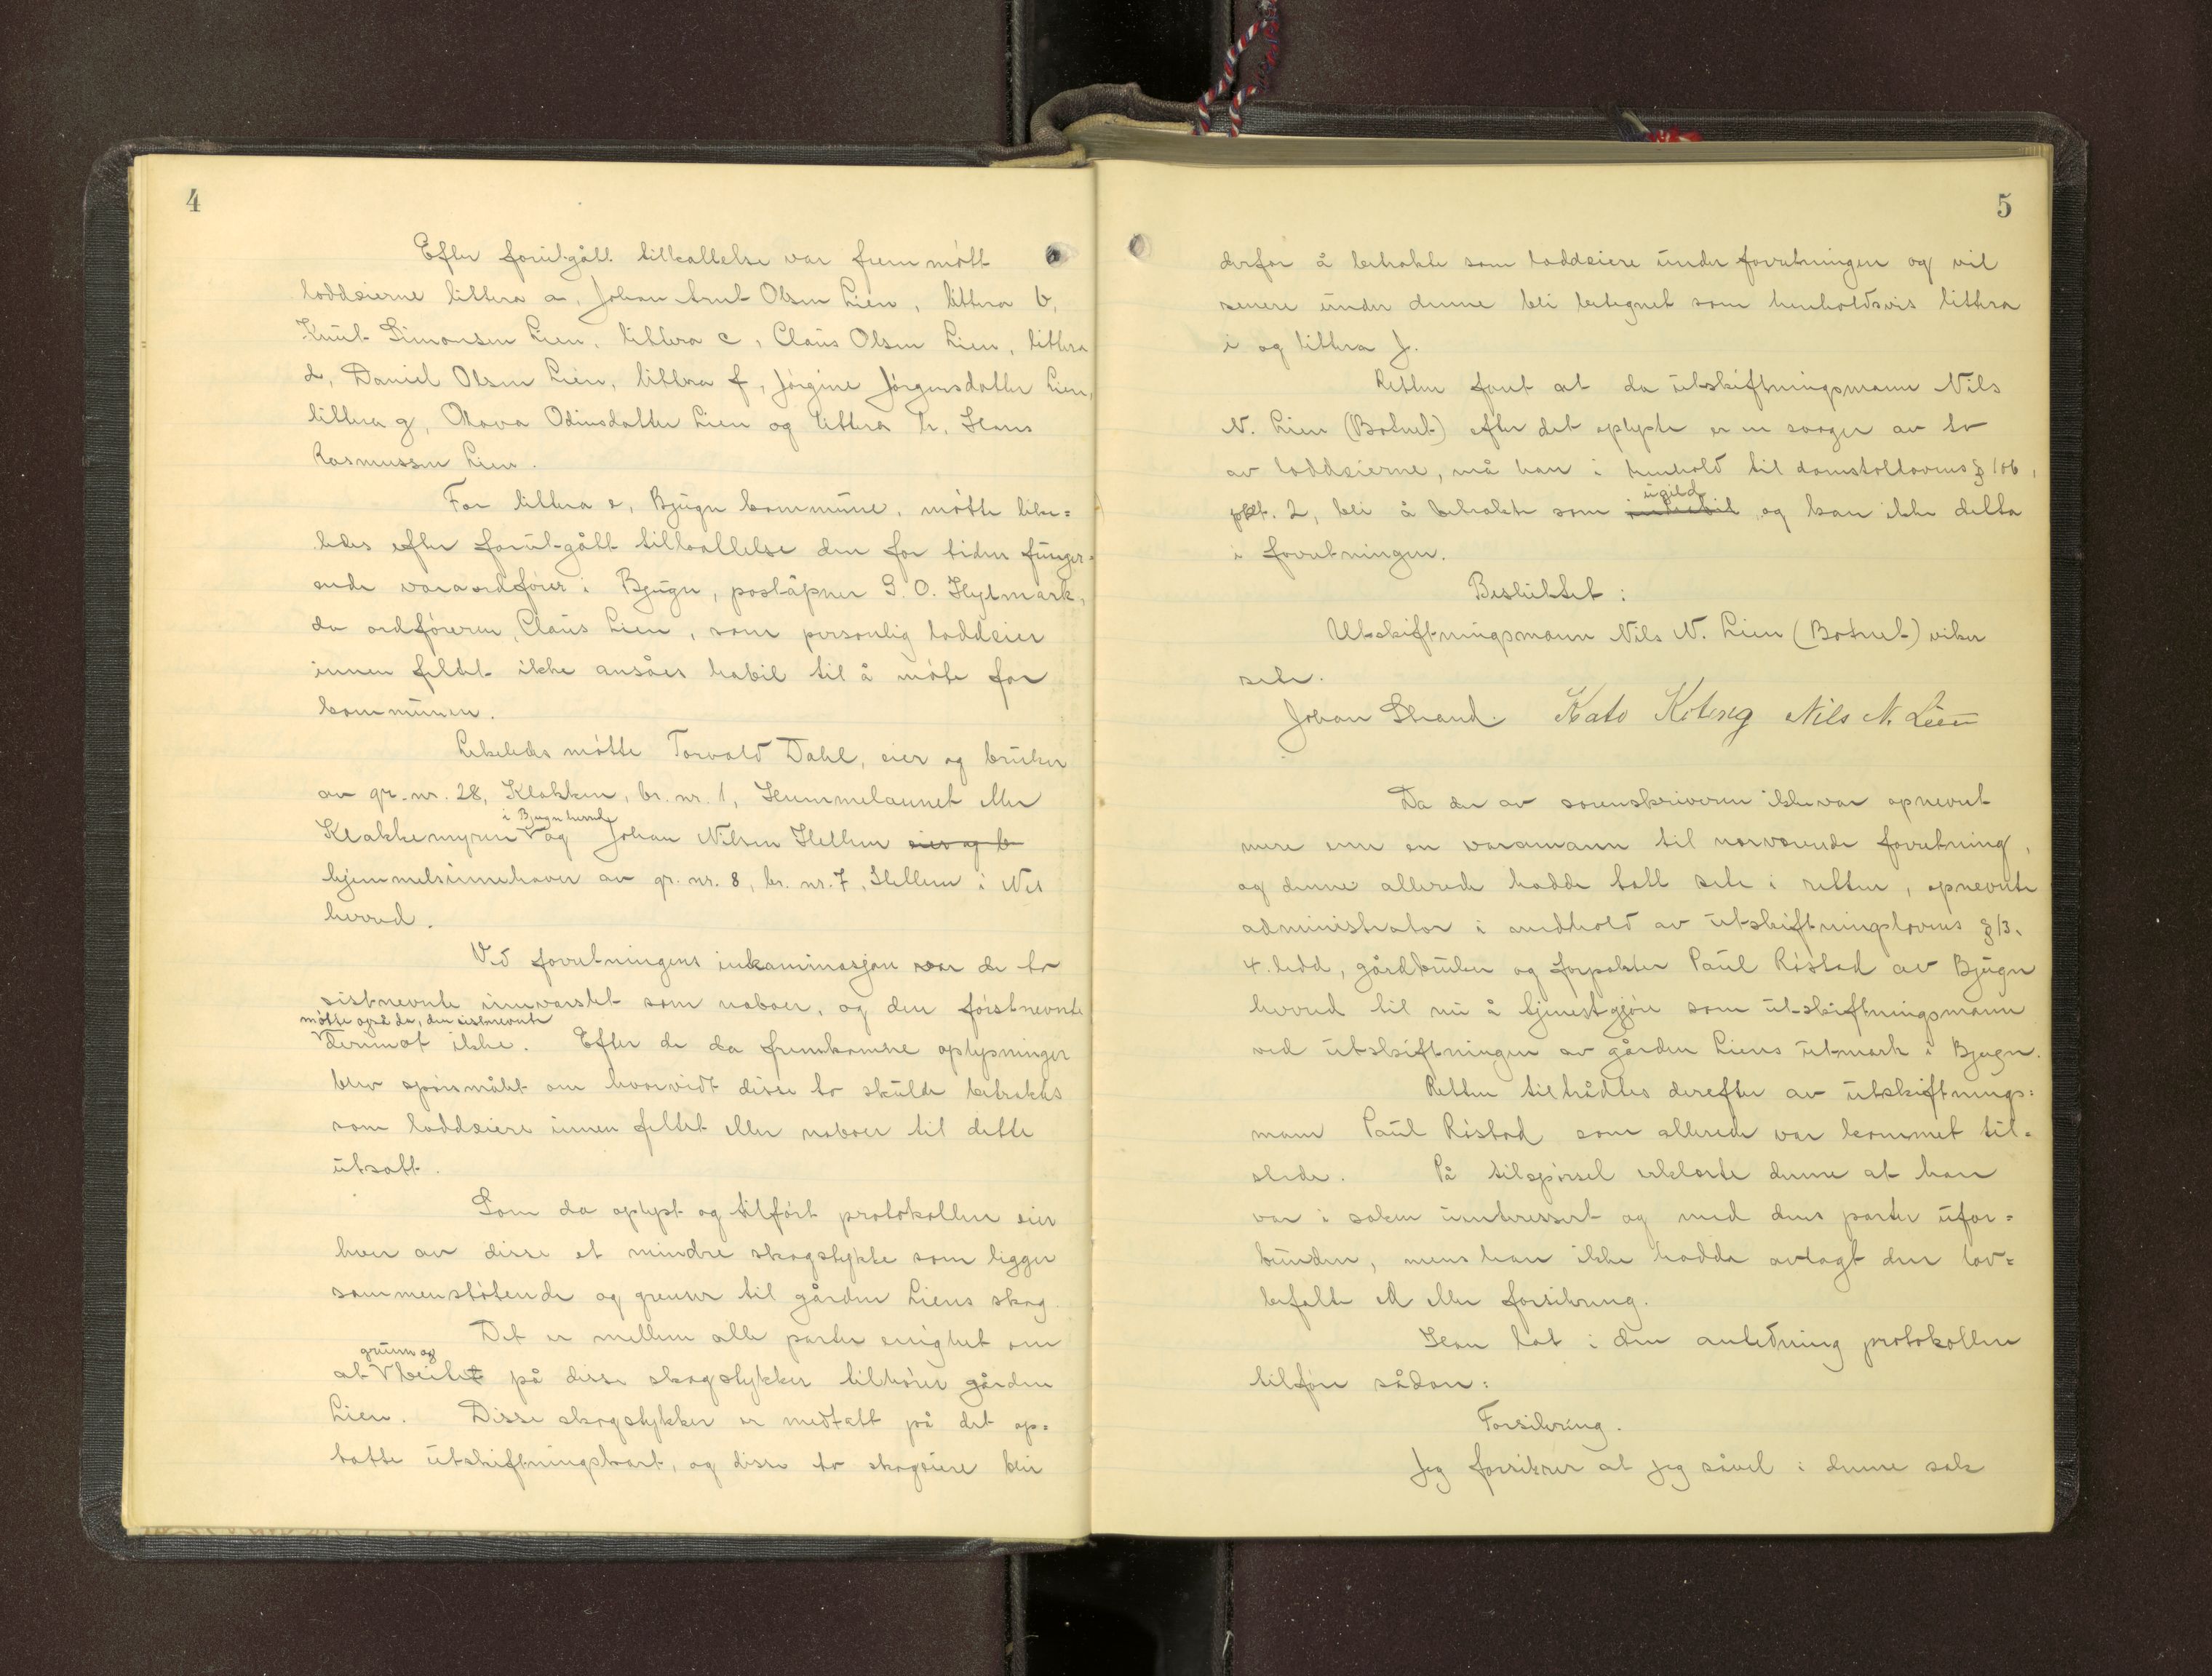 4
Efter forutgått tilkallelse var frem møtt
loddeierne littra a, Johan Arnt Olsen Lien, littra b,
Knut Simonsen Lien, littra c, Claus Olsen Lien, littra
d, Daniel Olsen Lien, littra f, Jørgine Jørgensdatter Lien,
littra g, Olava Odinsdatter Lien og littra h, Hans
Rasmussen Lien.
For littra e, Bjugn kommune, møtte like=
ledes efter forutgått tilkallelse den for tiden funger=
ende varaordfører i Bjugn, poståpner S. O. Hylmark,
da ordføreren, Claus Lien, som personlig loddeier
innen feltet ikke ansåes habil til å møte for
kommunen.
Likeledes møtte Torvald Dahl, eier og bruker
av gr. nr. 28, Klakken, br. nr. 1, Hummelaunet eller
i Bjugn herred
Klakkemyren V og Johan Nilsen Hellem eier og b
hjemmelsinnehaver av gr. nr. 8, br. nr. 7, Hellem i Nes
herred.
Ved forretningens inkaminasjon var de to
sistnevnte innvarslet som naboer, og den førstnevnte
møtte også da, den sistnevnte
V derimot ikke. Efter de da fremkomne oplysninger
blev spørsmålet om hvorvidt disse to skulde betraktes
som loddeiere innen feltet eller naboer til dette
utsatt.
Som da oplyst og tilført protokollen eier
hver av disse et mindre skogstykke som ligger
sammenstøtende og grenser til gården Liens skog.
Det er mellem alle parter enighet om
grunn og
at V beitet på disse skogstykker tilhører gården
Lien. Disse skogstykker er medtatt på det op=
tatte utskiftningskart, og disse to skogeiere blir
5
derfor å betrakte som loddeiere under forretningen og vil
senere under denne bli betegnet som henholdsvis littra
i og littra j.
Retten fant at da utskiftningsmann Nils
N. Lien (Botnet) efter det oplyste er en svoger av to
av loddeierne, må han i henhold til domstollovens § 106,
ugild
pkt. 2, bli å betrakte som inhabil og kan ikke delta
i forretningen.
Besluttet:
Utskiftningsmann Nils N. Lien (Botnet) viker
sete.
Johan Strand. Kato Koteng Nils N. Lien
Da der av sorenskriveren ikke var opnevnt
mere enn en varamann til nærværende forretning,
og denne allerede hadde tatt sete i retten, opnevnte
administrator i medhold av utskiftningslovens § 13,
4. ledd, gårdbruker og forpakter Paul Røstad av Bjugn
herred til nu å tjenestgjøre som utskiftningsmann
ved utskiftningen av gården Liens utmark i Bjugn.
Retten tiltrådtes derefter av utskiftnings=
mann Paul Røstad som allerede var kommet til=
stede. På tilspørsel erklærte denne at han
var i saken uinteressert og med dens parter ufor=
bunden, mens han ikke hadde avlagt den lov=
befalte ed eller forsikring.
Han lot i den anledning protokollen
tilføre sådan:
Forsikring.
Jeg forsikrer at jeg såvel i denne sak